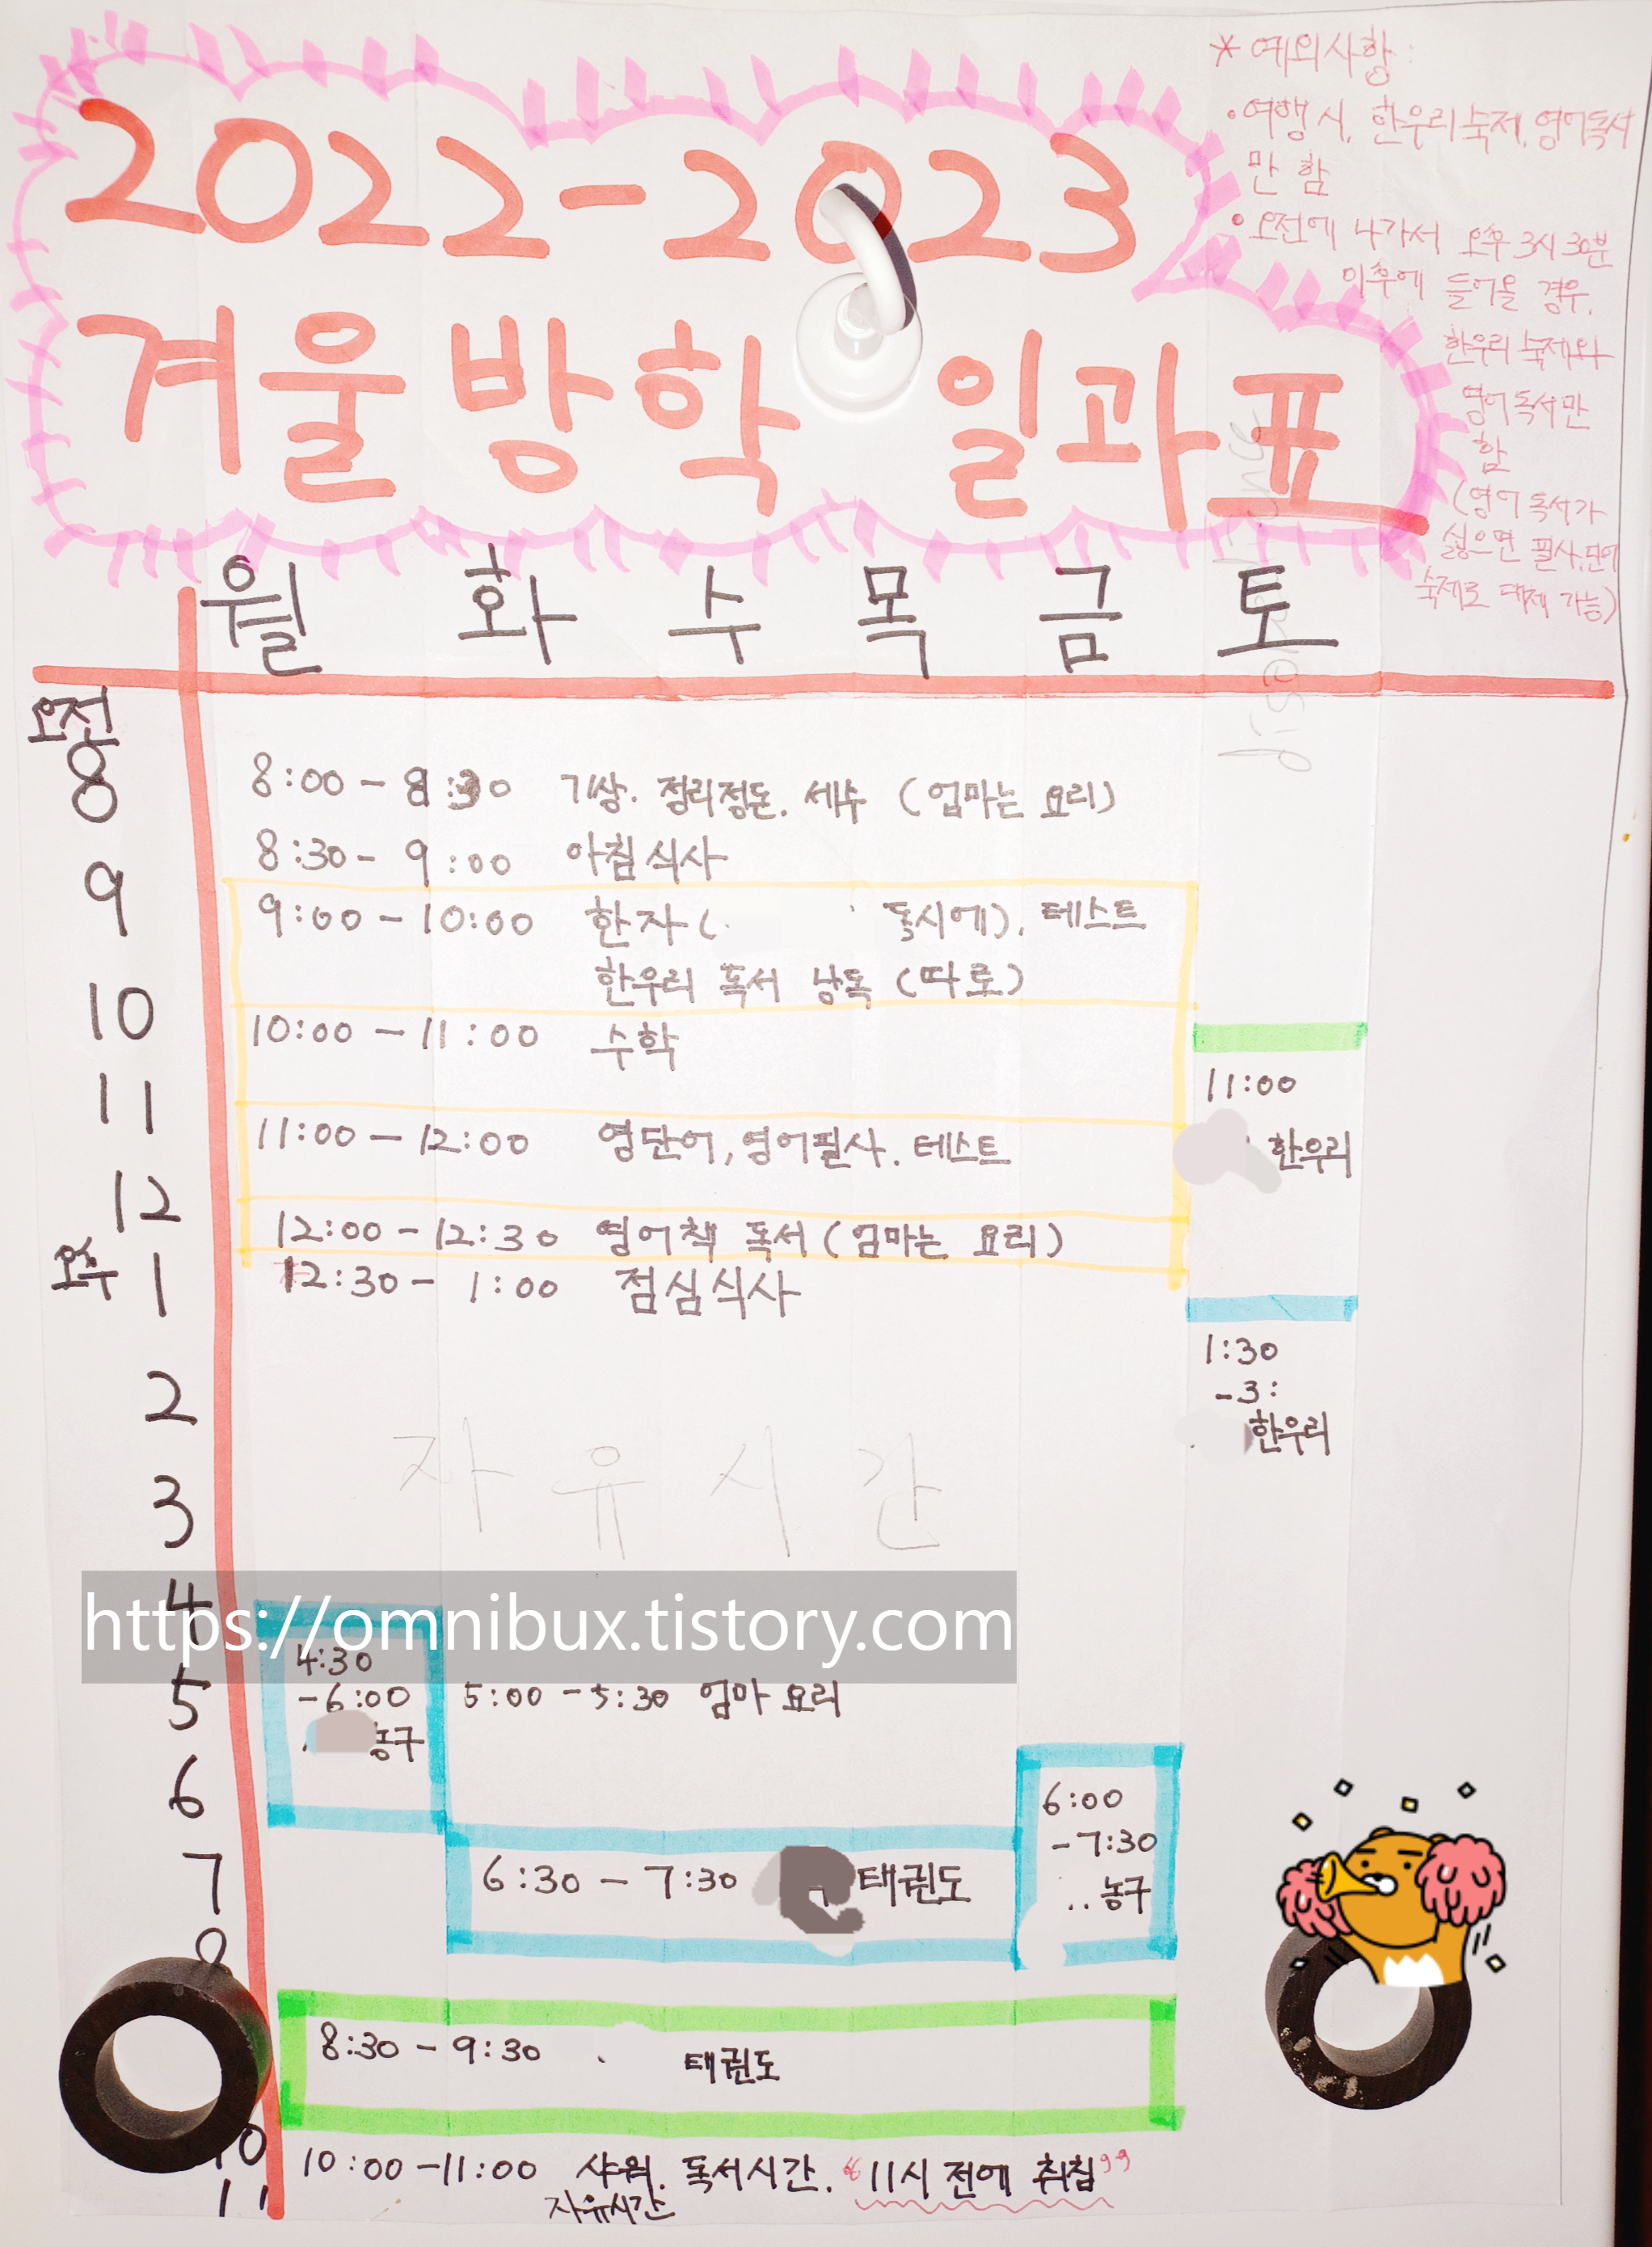 2022-2023
겨울방학 일과표
* 예외사항:
• 여행 시, 한우리숙제, 영어독서
만 함
• 오전에 나가서 오후 3시 30분
이후에 들어올 경우,
한우리 숙제와
영어독서만
함
(영어독서가
싫으면 필사, 단어
숙제로 대체 가능)
월 화 수 목 금 토
오전
8
8:00 - 8:30 기상. 정리정돈. 세수 (엄마는 요리)
8:30 - 9:00 아침식사
9
9:00 - 10:00 한자( 동시에). 테스트
한우리 독서 낭독 (따로)
10
10:00 - 11:00 수학
11
11:00
한우리
11:00 - 12:00 영단어, 영어필사. 테스트
12
12:00 - 12:30 영어책 독서 (엄마는 요리)
오후
1
12:30 - 1:00 점심식사
1:30
-3:
한우리
2
자유시간
3
4
https://omnibux.tistory.com
4:30
-6:00
농구
5
5:00 - 5:30 엄마 요리
6
6:00
-7:30
농구
7
6:30 - 7:30 태권도
8
8:30 - 9:30 태권도
10
10:00 - 11:00 샤워. 독서시간. "11시 전에 취침"
자유시간
11